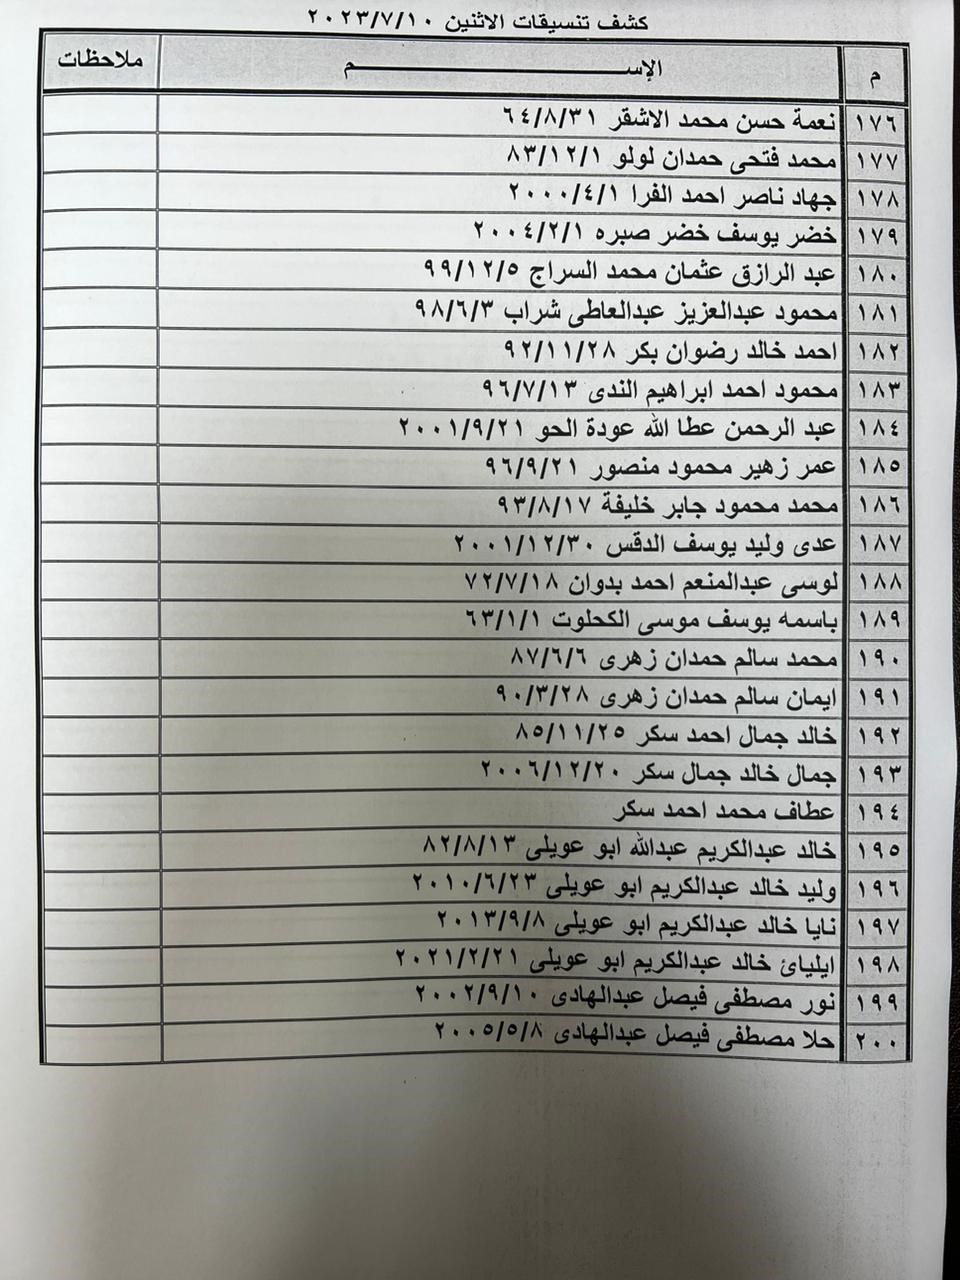 كشف تنسيقات الاثنين ٢٠٢٣/٧/١٠
م الإســـــــــم ملاحظات
١٧٦ نعمة حسن محمد الاشقر ٦٤/٨/٣١
١٧٧ محمد فتحى حمدان لولو ٨٣/١٢/١
١٧٨ جهاد ناصر احمد الفرا ٢٠٠٠/٤/١
١٧٩ خضر يوسف خضر صبره ٢٠٠٤/٢/١
١٨٠ عبد الرازق عثمان محمد السراج ٩٩/١٢/٥
١٨١ محمود عبدالعزيز عبدالعاطى شراب ٩٨/٦/٣
١٨٢ احمد خالد رضوان بكر ٩٢/١١/٢٨
١٨٣ محمود احمد ابراهيم الندى ٩٦/٧/١٣
١٨٤ عبد الرحمن عطا الله عودة الحو ٢٠٠١/٩/٢١
١٨٥ عمر زهير محمود منصور ٩٦/٩/٢١
١٨٦ محمد محمود جابر خليفة ٩٣/٨/١٧
١٨٧ عدى وليد يوسف الدقس ٢٠٠١/١٢/٣٠
١٨٨ لوسى عبدالمنعم احمد بدوان ٧٢/٧/١٨
١٨٩ باسمه يوسف موسى الكحلوت ٦٣/١/١
١٩٠ محمد سالم حمدان زهرى ٨٧/٦/٦
١٩١ ايمان سالم حمدان زهرى ٩٠/٣/٢٨
١٩٢ خالد جمال احمد سكر ٨٥/١١/٢٥
١٩٣ جمال خالد جمال سكر ٢٠٠٦/١٢/٢٠
١٩٤ عطاف محمد احمد سكر
١٩٥ خالد عبدالكريم عبدالله ابو عويلى ٨٢/٨/١٣
١٩٦ وليد خالد عبدالكريم ابو عويلى ٢٠١٠/٦/٢٣
١٩٧ نايا خالد عبدالكريم ابو عويلى ٢٠١٣/٩/٨
١٩٨ ايليائ خالد عبدالكريم ابو عويلى ٢٠٢١/٢/٢١
١٩٩ نور مصطفى فيصل عبدالهادى ٢٠٠٢/٩/١٠
٢٠٠ حلا مصطفى فيصل عبدالهادى ٢٠٠٥/٥/٨